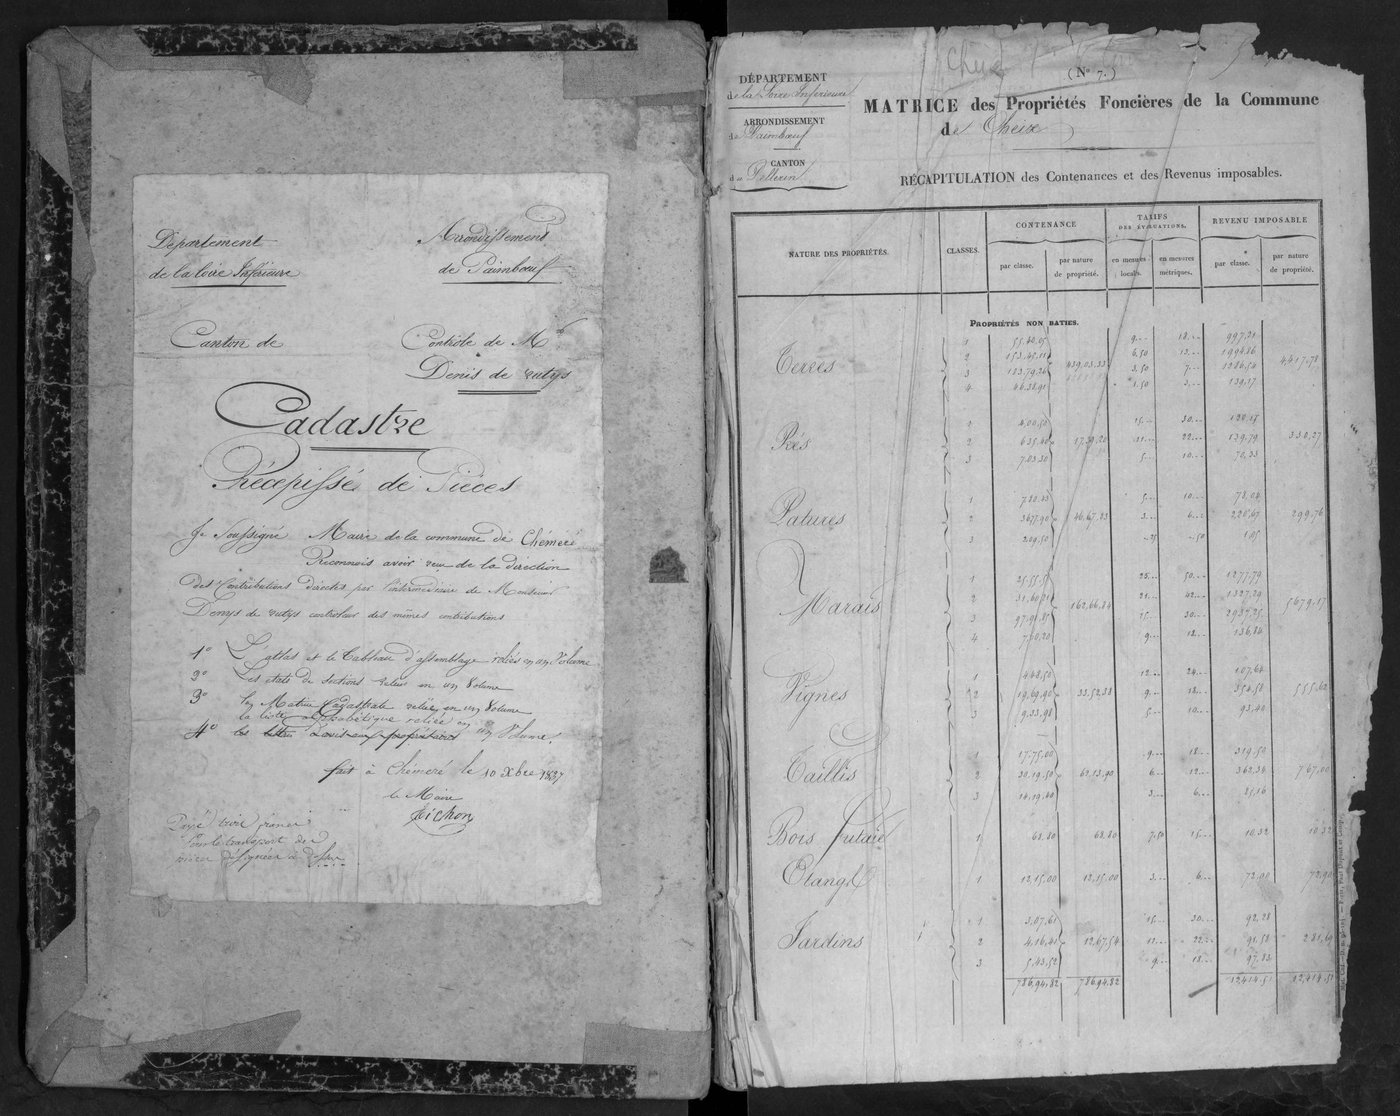 Département
de la Loire Inférieure
Arrondissement
de Paimbœuf
Canton de
Contrôle de Mr
Denis de rutys
Cadastre
Récépissé de Pièces
Je Soussigné Maire de la commune de Chéméré
Reconnois avoir reçu de la direction
des Contributions directes par l'intermédiaire de Monsieur
Denys de rutys controleur des mêmes contributions
1° L'atlas et le Tableau d'assemblage reliés en un Volume
Les etats de sections reliés en un Volume
3° la Matrice Cadastrale reliée en un Volume
la liste alphabétique reliée en
4° un Volume.
fait à Chéméré le 10 Xbre 1837
le Maire
Payé trois francs
Pour le transport des
(N° 7.)
DÉPARTEMENT
de la Loire Inférieure
ARRONDISSEMENT
de Paimbœuf
CANTON
du Pellerin
MATRICE des Propriétés Foncières de la Commune
de Cheix
RÉCAPITULATION des Contenances et des Revenus imposables.
NATURE DES PROPRIÉTÉS. CLASSES. CONTENANCE TARIFS DES ÉVALUATIONS. REVENU IMPOSABLE
par classe. par nature de propriété. en mesures locales. en mesures métriques. par classe. par nature de propriété.
PROPRIÉTÉS NON BATIES.
Terres
1 55.40.05 9... 18... 997.21
2 153.45.11 6.50 13... 1994.86
3 183.79.26 439.03.33 3.50 7... 1286.54 4,417.78
4 46.38.91 1.50 3... 139.17
Prés
1 4.00.50 15... 30... 120.15
2 6.35.40 17.39.20 11... 22... 139.79 330.27
3 7.03.30 5... 10... 70.33
Patures
1 7.80.43 5... 10... 78.04
2 36.77.90 46.67.83 3... 6... 220.67 299.76
3 2.09.50 ..25 ..50 1.05
Marais
1 25.55.5 25... 50... 1277.79
2 31.60.21 21... 42... 1327.29
3 97.90.85 162.66.84 15... 30... 2937.25 5679.17
4 7.60.20 9... 18... 136.84
Vignes
1 4.48.50 12... 24... 107.64
2 19.69.90 33.52.38 9... 18... 354.58 555.62
3 9.33.98 5... 10... 93.40
Taillis
1 17.75.00 9... 18... 319.50
2 30.19.50 62.13.90 6... 12... 362.34 767.00
3 14.19.40 3... 6... 85.16
Bois futaie 1 68.80 68.80 7.50 15... 10.32 10.32
Etangs 1 12.15.00 12.15.00 3... 6... 72.90 72.90
Jardins
1 3.07.61 15... 30... 92.28
2 4.16.41 12.67.54 11... 22... 91.58 281.69
3 5.43.52 9... 18... 97.83
786.94.82 786.94.82 12,414.51 12,414.51